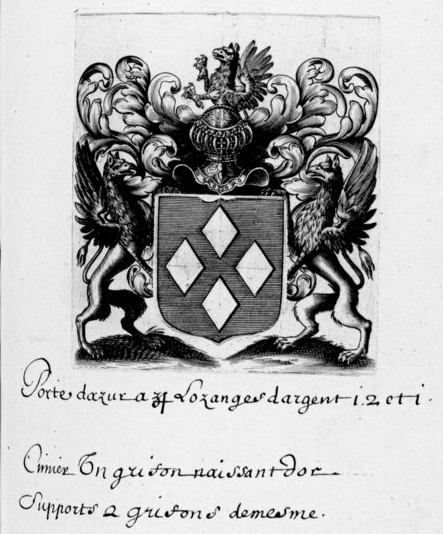 Porte dazur a 4 Lozanges dargent 1. 2 et 1.
Cimier Un grifon naissant dor
Supports 2 grifons demesme.